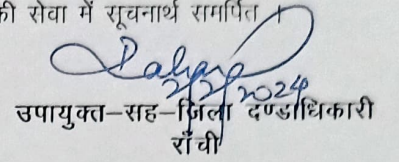 की सेवा में सूचनार्थ समर्पित ।
2/2/2024
उपायुक्त-सह-ज़िला दण्डाधिकारी
राँची